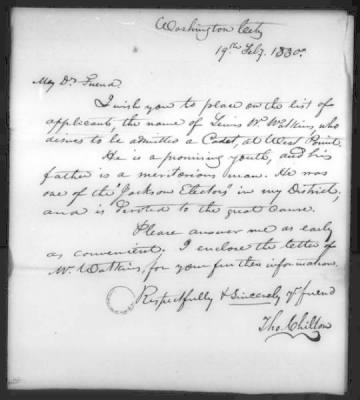 Washington City
19th Feby. 1830.
My Dr Friend.
I wish you to place on the list of
applicants, the name of Lewis W. Watkins, who
desires to be admitted a Cadet, at West Point.
He is a promising youth, and his
father is a meritorious man. He was
one of the "Jackson Electors" in my District,
and is devoted to the great cause.
Please answer me as early
as convenient. I enclose the letter of
Mr. Watkins, for your further information.
Respectfully & Sincerely yr friend
Tho. Chilton